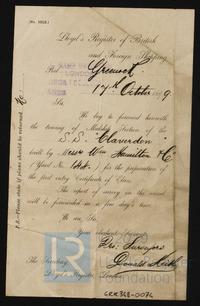 (No. 1018.)
Lloyd's Register of British
and Foreign Shipping,
Port Greenock
17th October 189
Sir,
We beg to forward herewith
the tracing of Midship Section of the
S.S. "Claverdon"
built by Messrs Wm Hamilton & Co
(Yard No. ) for the preparation of
the first entry Certificate of Class.
The report of survey in this vessel
will be forwarded in a few days' time.
We are, Sir,
Your obedient Servants,
Surveyors
The Secretary,
Lloyd's Register
P.S.—Please state if plans should be returned.
Lloyd's Register
Foundation